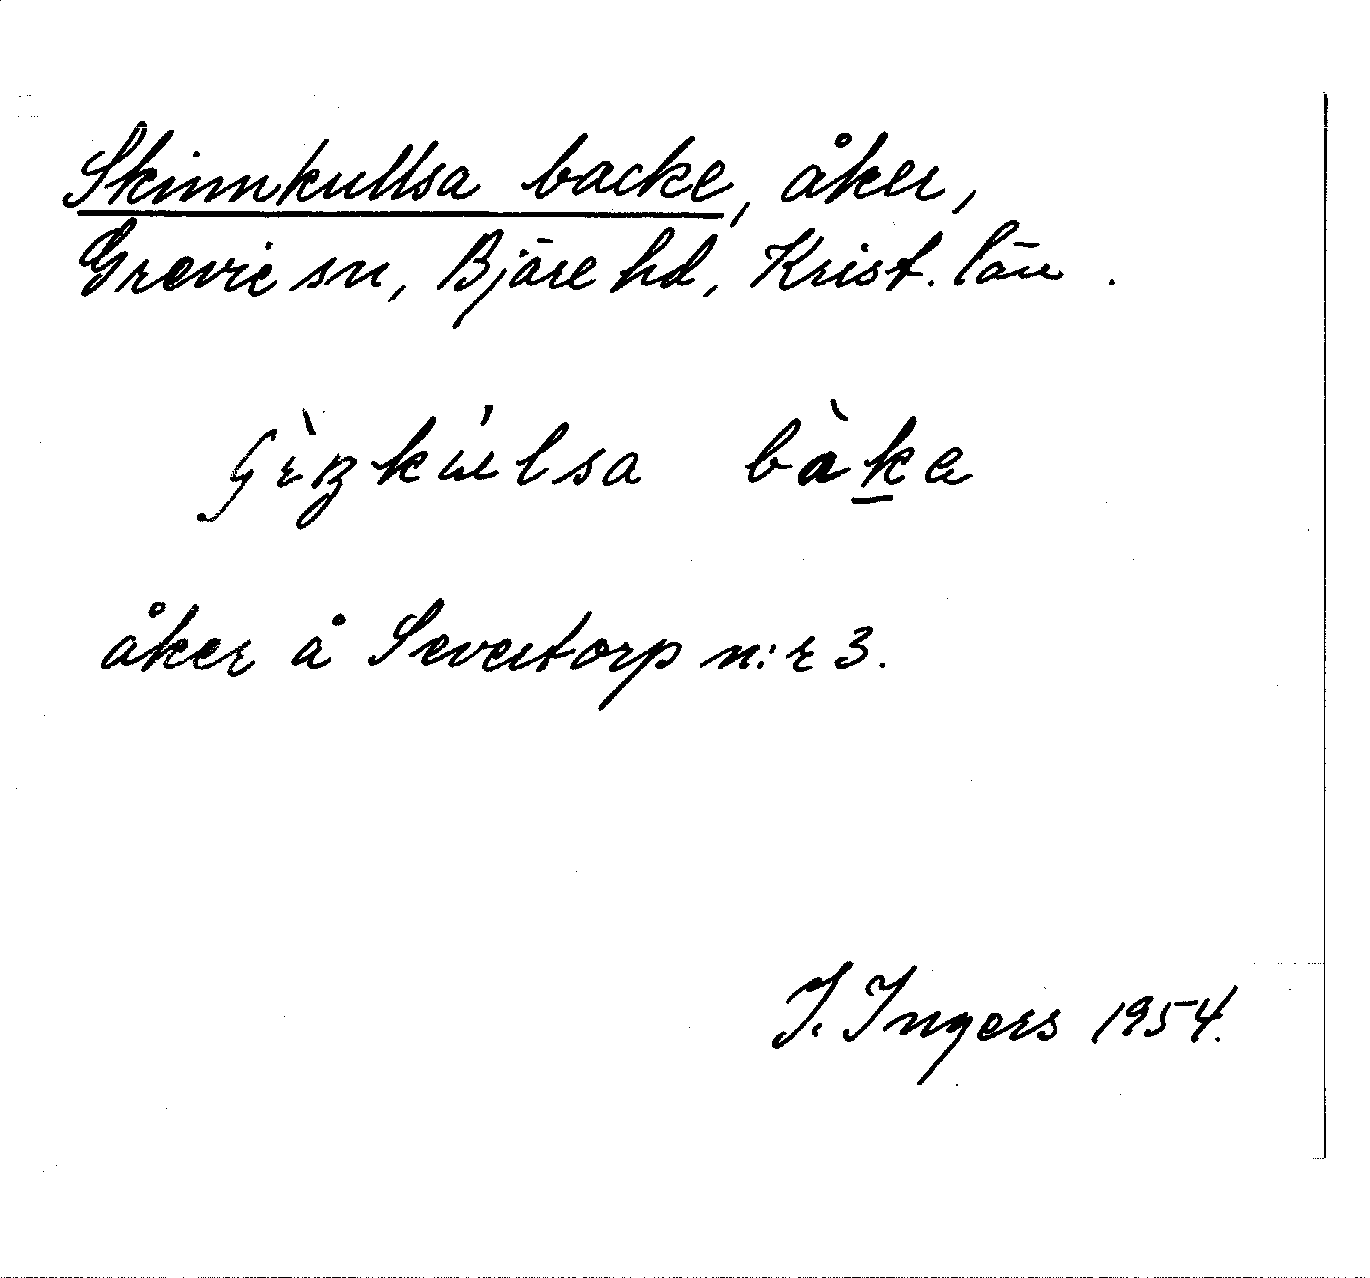 Skinnkullsa backe, åker,
Grevie sn, Bjäre hd, Krist. län.
bàka
åker å Severtorp n:r 3.
I. Ingers 1954.